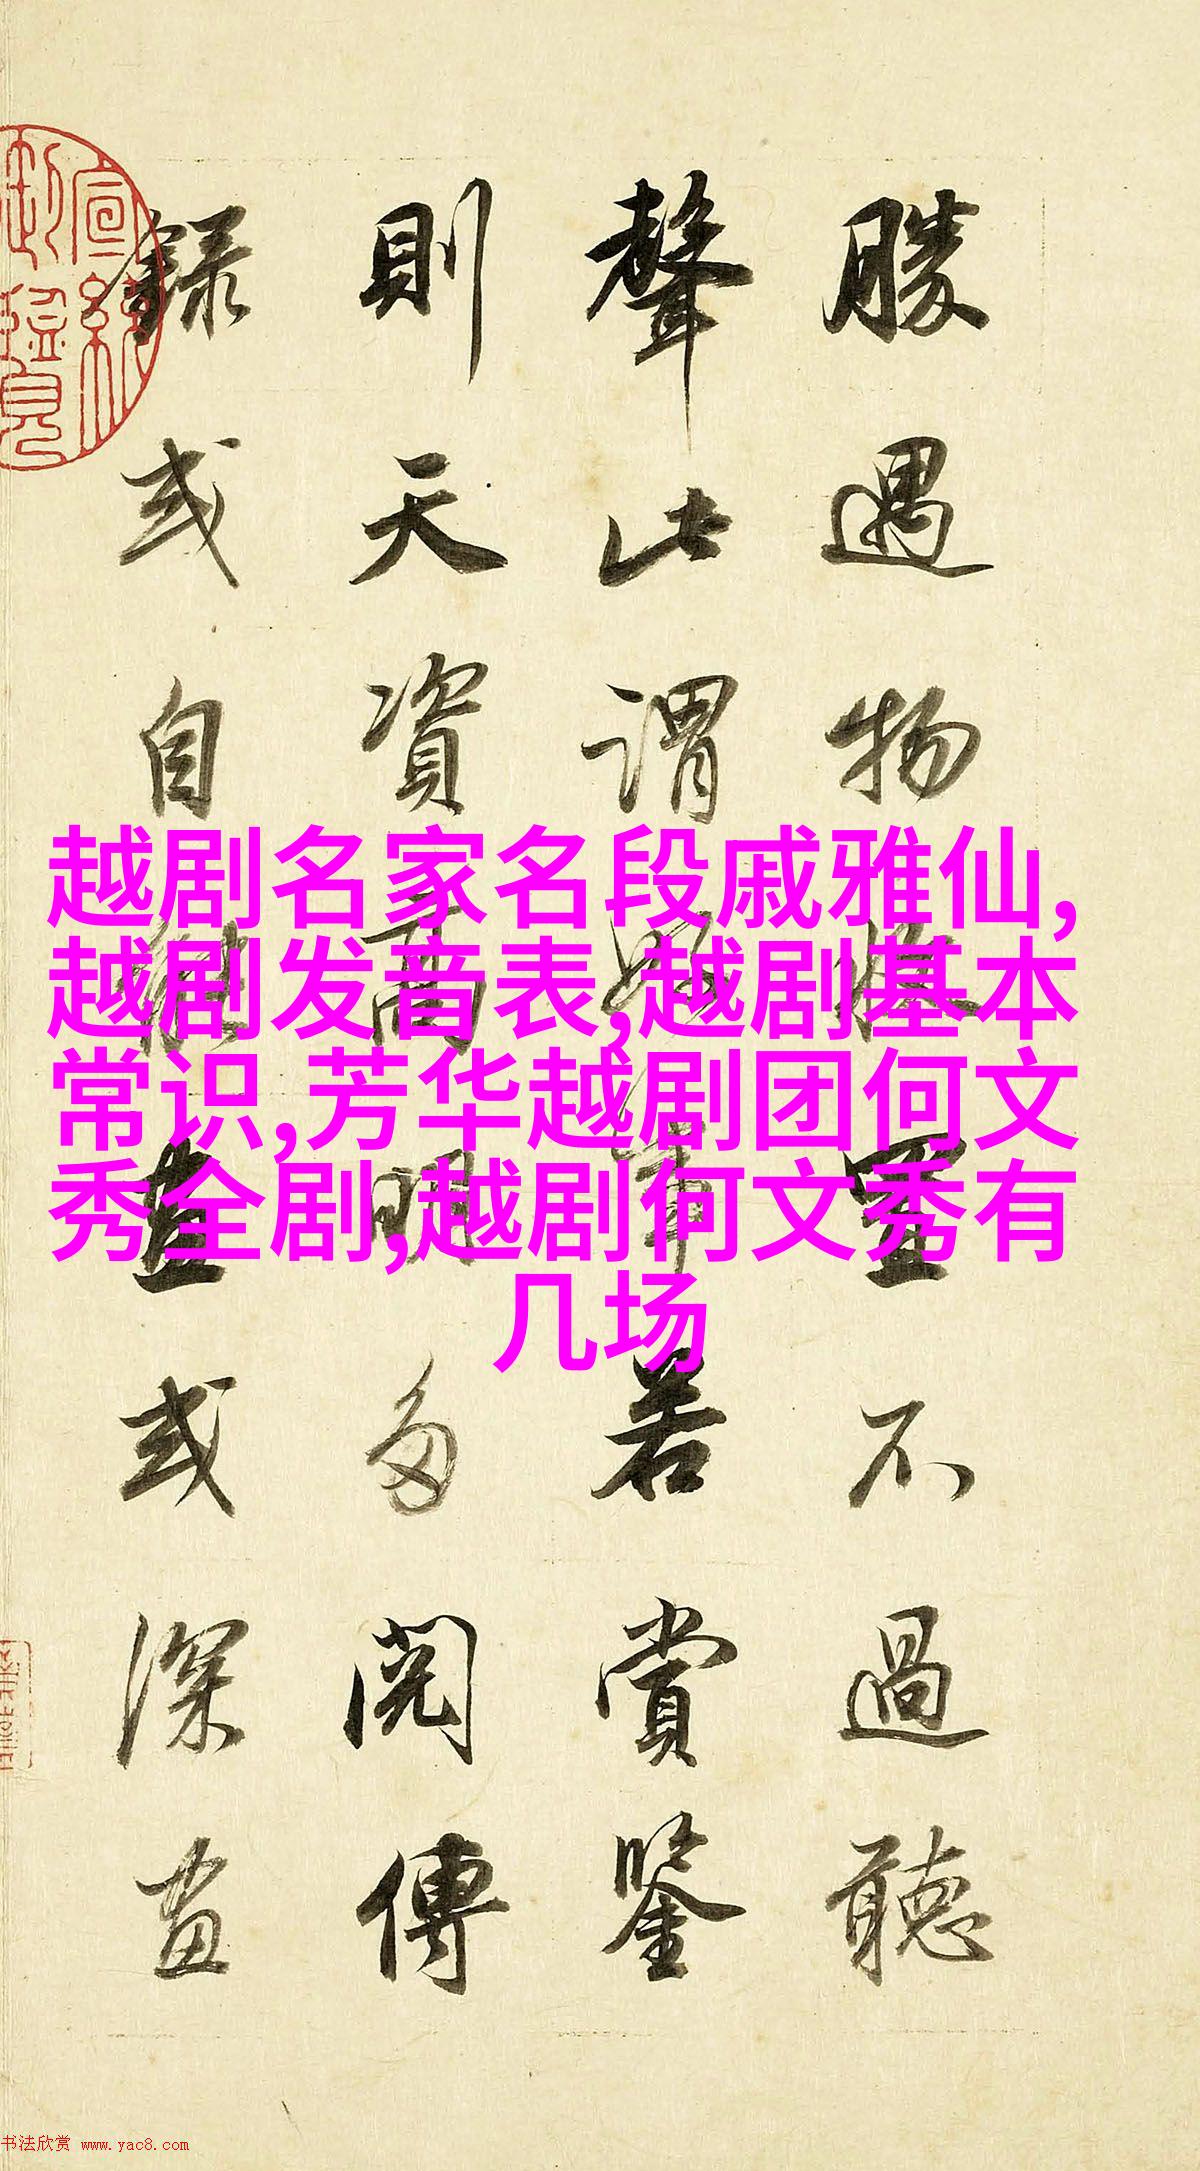 勝遇物收置不過聽
聲此謂好事若賞鑒
則天資高明多閱傳
錄或自能畫或深畫
越剧名家名段戚雅仙,
越剧发音表,越剧基本
常识,芳华越剧团何文
秀全剧,越剧何文秀有
几场
书法欣赏 www.yac8.com